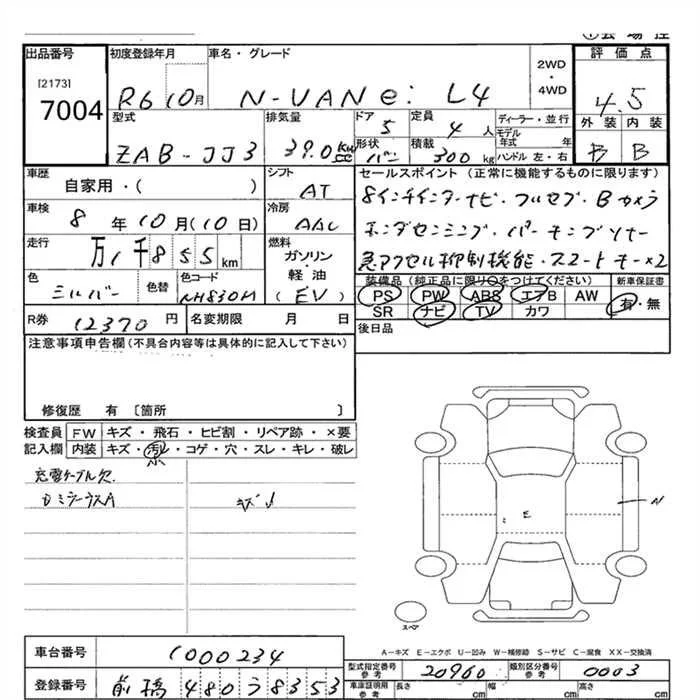 出品番号
[2173]
7004
初度登録年月
R6 10月
車名・グレード
N-VAN e: L4
2WD
・
4WD
評価点
4.5
外装 内装
B B
型式
ZAB-JJ3
排気量
39.0 KW
cc
ドア
5
定員
4 人
形状
バン
積載
300 kg
ディーラー・並行
モデル
年式 年
ハンドル 左・右
車歴
自家用・( )
シフト
AT
車検
8 年 10 月 (10日)
冷房
AAC
走行
万 1千855 km
燃料
ガソリン
・
軽・油
(EV)
色
シルバー
色替
色コード
NH830M
R券
12370 円
名変期限 月 日
セールスポイント (正常に機能するものに限ります)
8インチインターナビ・フルセグ・Bカメラ
ホンダセンシング・パーキングソナー
急アクセル抑制機能・スマートキー×2
装備品 (純正品に限り○をつけてください)
新車保証書
PS PW ABS エアB AW
SR ナビ TV カワ
有・無
後日品
注意事項申告欄 (不具合内容等は具体的に記入して下さい)
修復歴 有 [箇所 ]
検査員
記入欄
FW キズ・飛石・ヒビ割・リペア跡・×要
内装 キズ・汚レ・コゲ・穴・スレ・キレ・破レ
小
充電ケーブル欠
キズ小
N
E
スペア
A-キズ E-エクボ U-凹み W-補修跡 S-サビ C-腐食 XX-交換済
車台番号
1000234
登録番号
前橋 480う8353
型式指定番号
参考
20960
類別区分番号
参考
0003
車庫証明用
参考
長さ cm
幅 cm
高さ cm